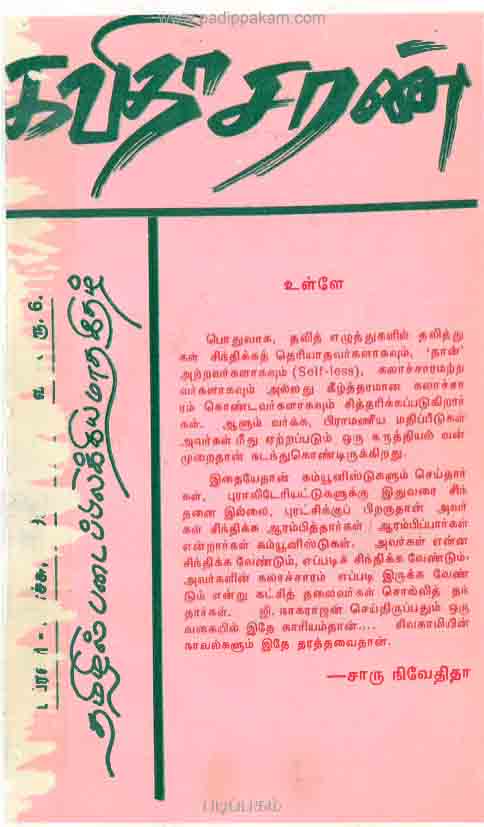 www.padippakam.com
கவிதாசரண்
தமிழில் படைப்பிலக்கிய மாத இதழ்
ரூ. 6.
உள்ளே
பொதுவாக, தலித் எழுத்துகளில் தலித்து
கள் சிந்திக்கத் தெரியாதவர்களாகவும், 'தான்'
அற்றவர்களாகவும் (Self-less). கலாச்சாரமற்ற
வர்களாகவும் அல்லது கீழ்த்தரமான கலாச்சா
ரம் கொண்டவர்களாகவும் சித்தரிக்கப்படுகிறார்
கள். ஆளும் வர்க்க, பிராமணீய மதிப்பீடுகள்
அவர்கள் மீது ஏற்றப்படும் ஒரு கருத்தியல் வன்
முறைதான் நடந்துகொண்டிருக்கிறது.
இதையேதான் கம்யூனிஸ்டுகளும் செய்தார்
கள். புராலிடேரியட்டுகளுக்கு இதுவரை சிந்
தனை இல்லை, புரட்சிக்குப் பிறகுதான் அவர்
கள் சிந்திக்க ஆரம்பித்தார்கள் / ஆரம்பிப்பார்கள்
என்றார்கள் கம்யூனிஸ்டுகள். அவர்கள் என்ன
சிந்திக்க வேண்டும், எப்படிச் சிந்திக்க வேண்டும்.
அவர்களின் கலாச்சாரம் எப்படி இருக்க வேண்
டும் என்று கட்சித் தலைவர்கள் சொல்லித் தந்
தார்கள். ஜி. நாகராஜன் செய்திருப்பதும் ஒரு
வகையில் இதே காரியம்தான்.... சிவகாமியின்
நாவல்களும் இதே தரத்தவைதான்.
—சாரு நிவேதிதா
படிப்பகம்